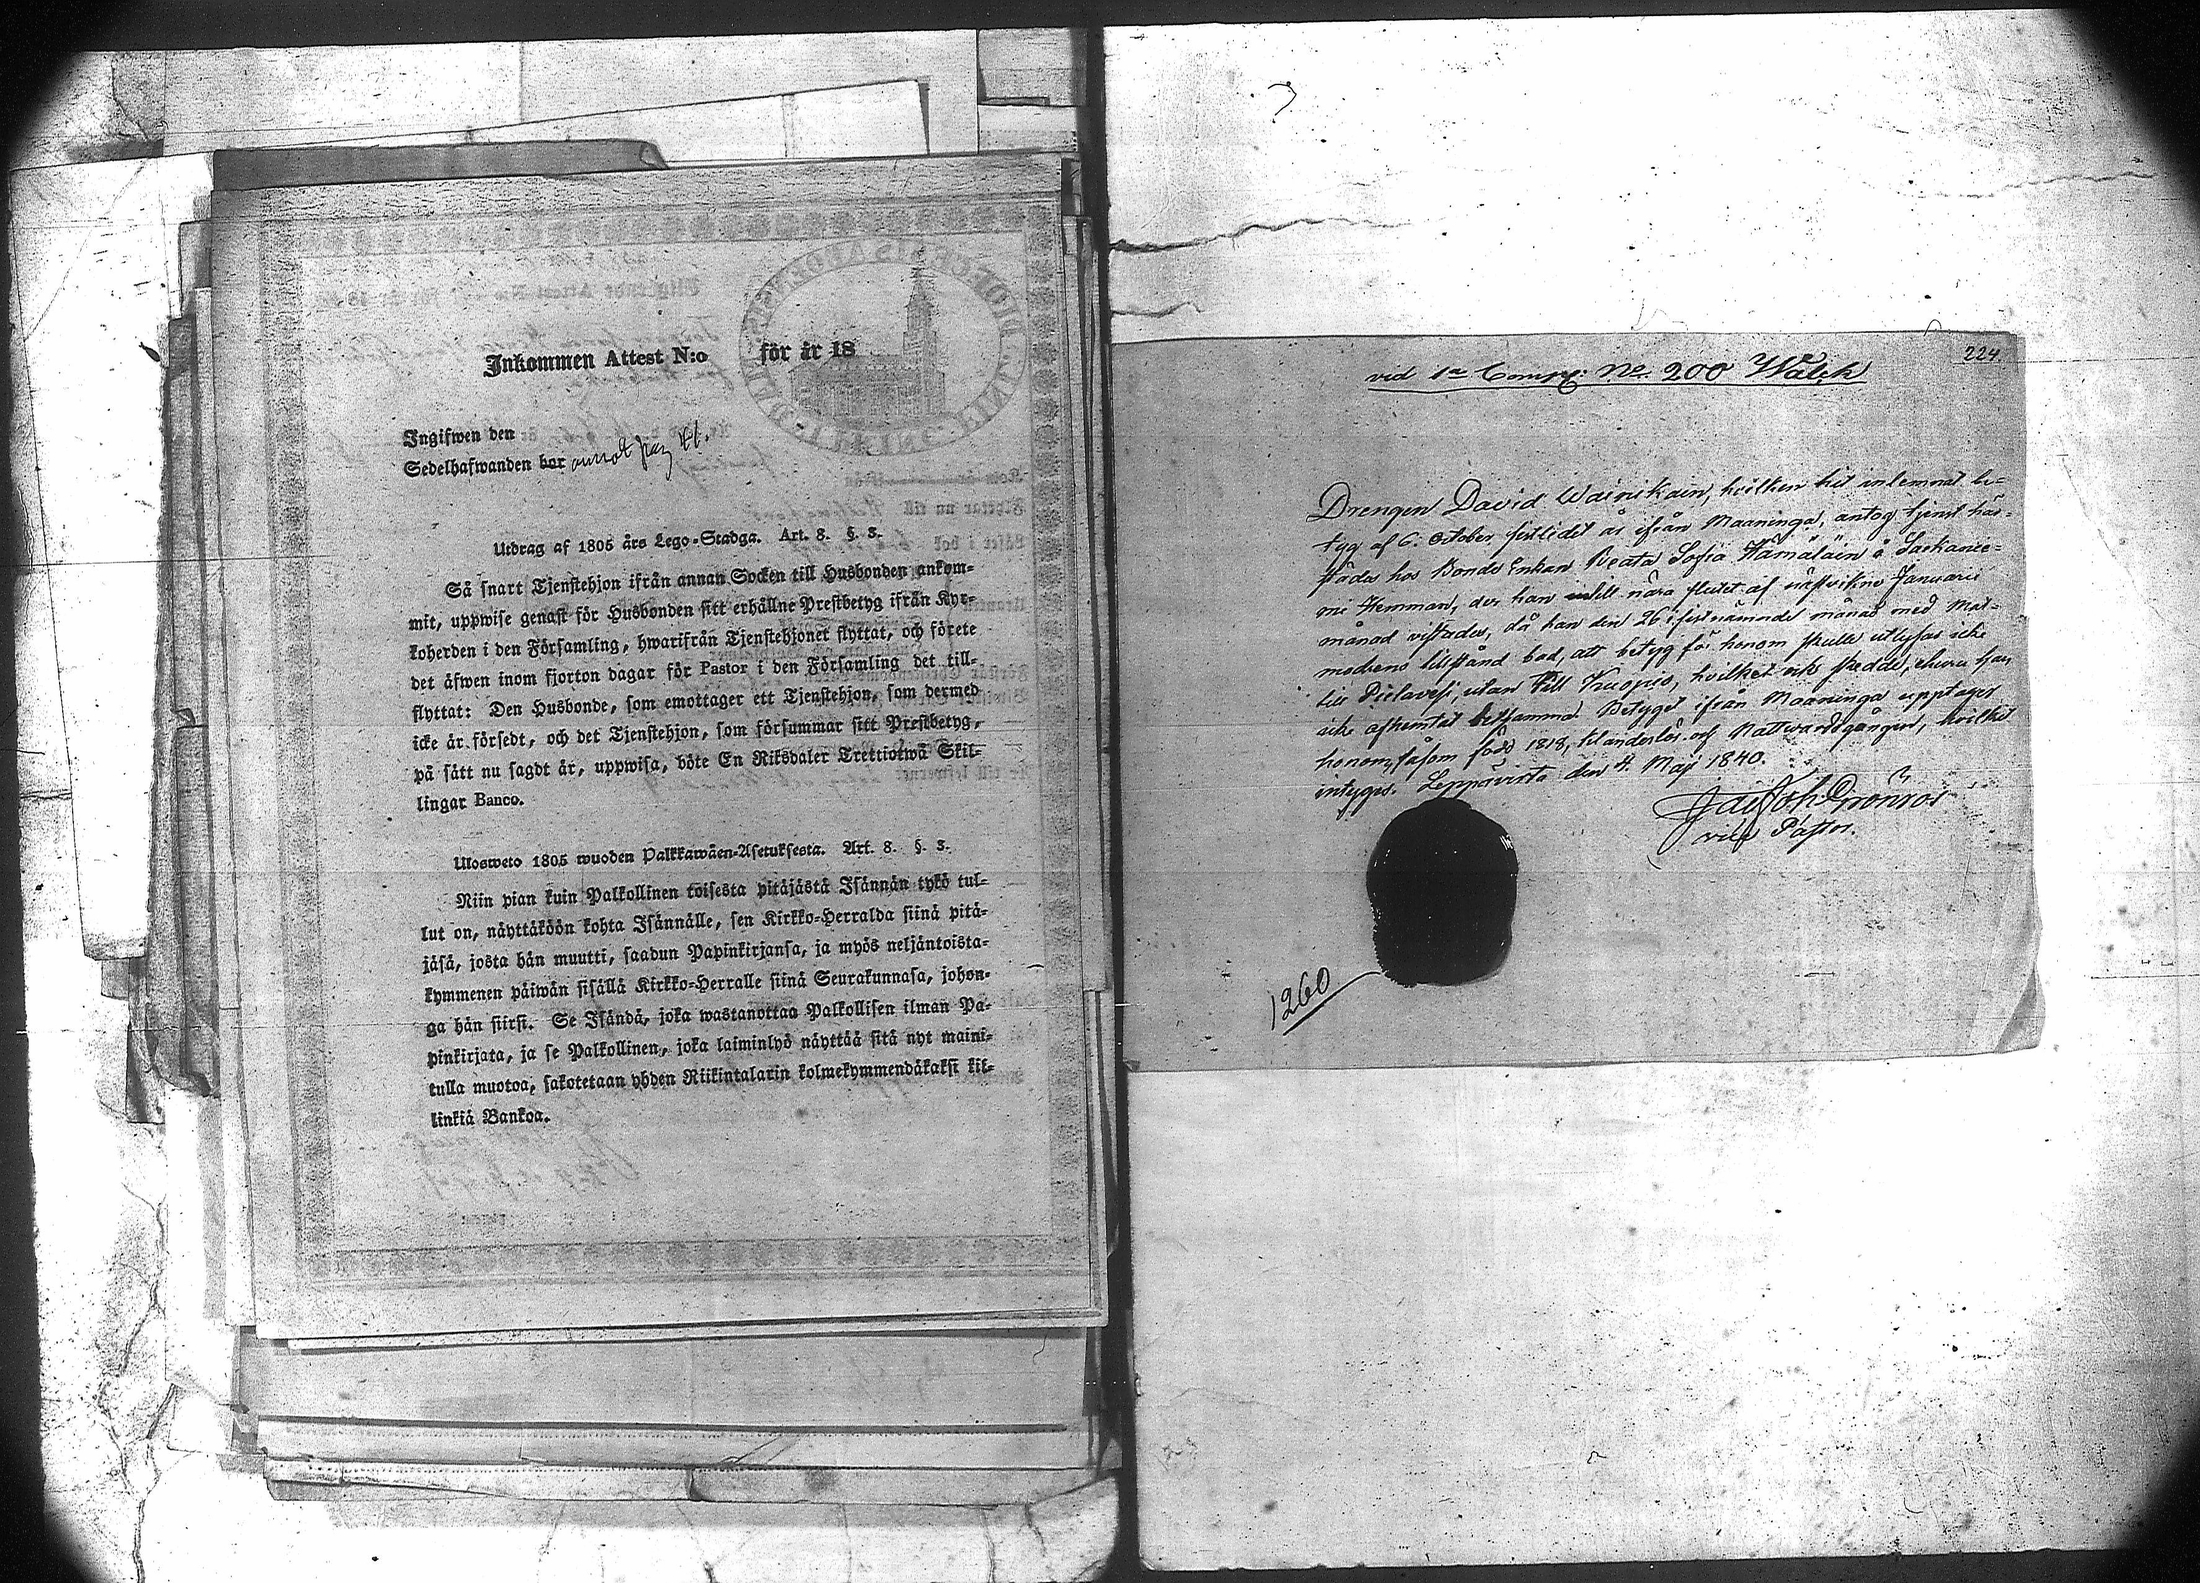 Inkommen Attest N:o för år 18
Ingifwen den
Sedelhafwanden bor
Utdrag af 1805 års Lego-Stadga. Art. 8. §. 3.
Så snart Tjenstehjon ifrån annan Socken till Husbonden ankom-
mit, uppwise genast för Husbonden sitt erhållne Prestbetyg ifrån Kyr-
koherden i den Församling, hwarifrån Tjenstehjonet flyttat, och förete
det äfwen inom fjorton dagar för Pastor i den Församling det till-
flyttat: Den Husbonde, som emottager ett Tjenstehjon, som dermed
icke är försedt, och det Tjenstehjon, som försummar sitt Prestbetyg,
på sätt nu sagdt är, uppwisa, böte En Riksdaler Trettiotwå Skil-
lingar Banco.
Ulosweto 1805 wuoden Palkkawäen-Asetuksesta. Art. 8. §. 3.
Niin pian kuin Palkollinen toisesta pitäjästä Isännän tykö tul-
lut on, näyttäköön kohta Isännälle, sen Kirkko-Herralda siinä pitä-
jäsä, josta hän muutti, saadun Papinkirjansa, ja myös neljäntoista-
kymmenen päiwän sisällä Kirkko-Herralle siinä Seurakunnasa, johon-
ga hän siirsi. Se Isändä, joka wastanottaa Palkollisen ilman Pa-
pinkirjata, ja se Palkollinen, joka laiminlyö näyttää sitä nyt maini-
tulla muotoa, sakotetaan yhden Riikintalarin kolmekymmendäkaksi kil-
linkiä Bankoa.
224.
vid 1a Comp: No. 200 Wålck
Drengen David Wainikain, hvilken hit inlemnat be-
tyg af 6. October sistlidet år ifrån Maaninga, antog tjenst här-
städes hos Bonde Enkan Beata Sofia Hämäläin å Saskanie-
mi Hemman, der han intill nära slutet af Januarii
månad vistades, då han den 26 i sistnämnde månad med
modrens tillstånd bad, att betyg för honom skulle utlysas icke
till Pielavesi, utan till Kuopio, hvilket ock skedde, churu han
icke afhemtat detsamma. Betyget ifrån Maaninga upptager
honom såsom född 1818, och Nattwardsgången, hvilket
intygas. Leppävirta den 4. Maji 1840.
Joh. Grönroos
vice Pastor.
1260